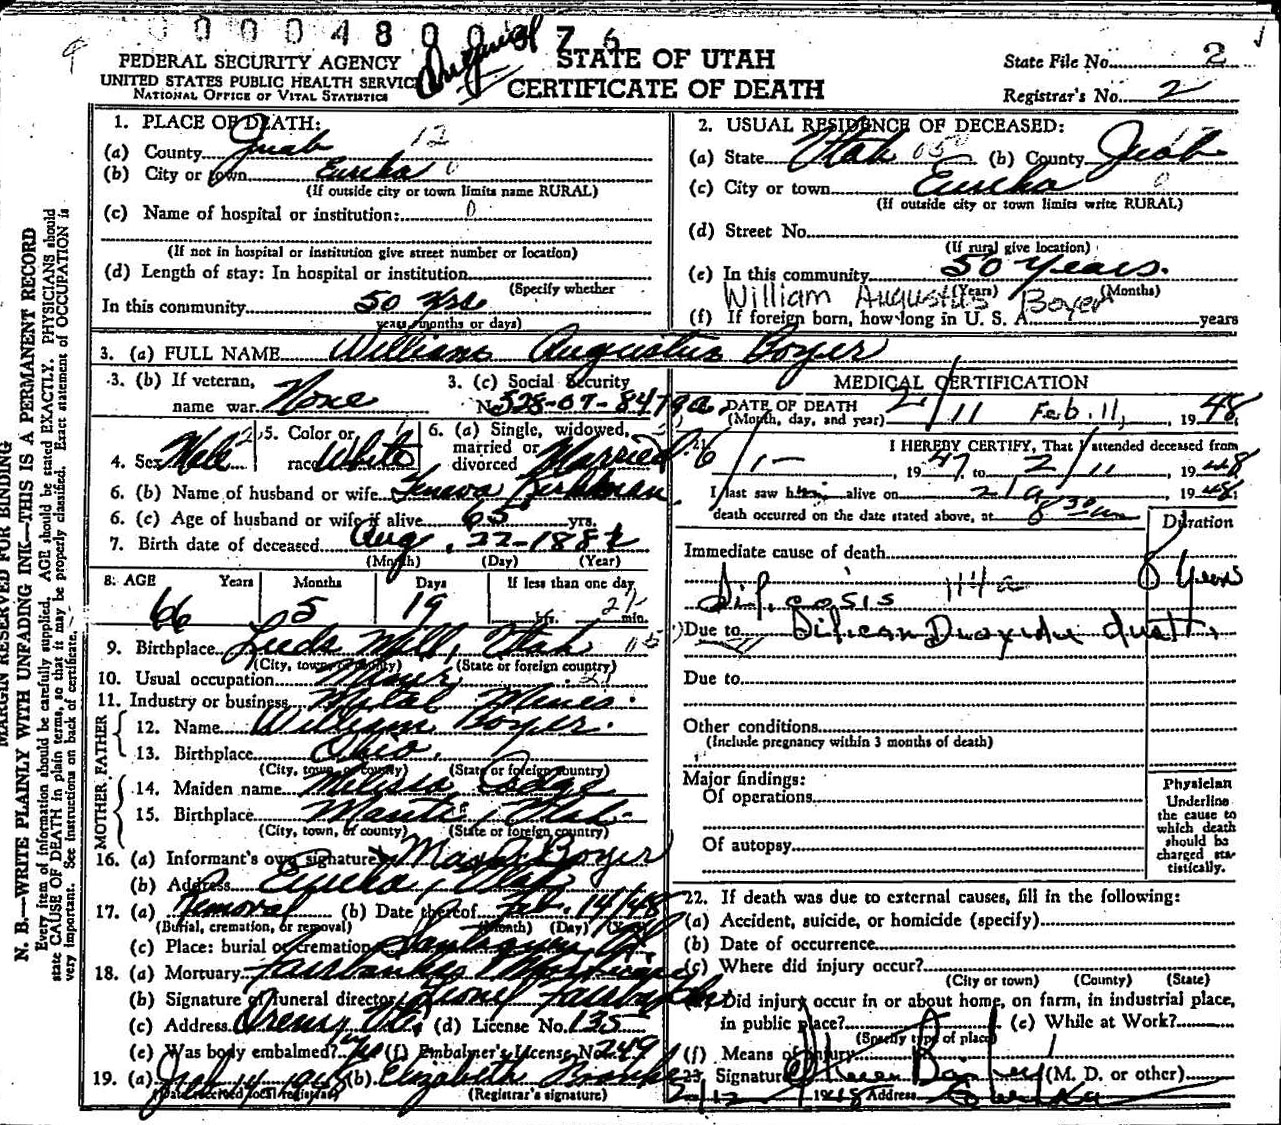 0 0 0 4 8 0 0 7 6
FEDERAL SECURITY AGENCY
UNITED STATES PUBLIC HEALTH SERVICE
NATIONAL OFFICE OF VITAL STATISTICS
STATE OF UTAH
CERTIFICATE OF DEATH
State File No. 2
Registrar's No. 2
MARGIN RESERVED FOR BINDING
N. B.—WRITE PLAINLY WITH UNFADING INK—THIS IS A PERMANENT RECORD
Every item of information should be carefully supplied. AGE should be stated EXACTLY. PHYSICIANS should
state CAUSE OF DEATH in plain terms, so that it may be properly classified. Exact statement of OCCUPATION is
very important. See instructions on back of certificate.
1. PLACE OF DEATH:
(a) County Juab 12
(b) City or town Eureka 0
(If outside city or town limits name RURAL)
(c) Name of hospital or institution: 0
(If not in hospital or institution give street number or location)
(d) Length of stay: In hospital or institution
(Specify whether
In this community 50 yrs
years, months or days)
2. USUAL RESIDENCE OF DECEASED:
(a) State Utah (b) County Juab
(c) City or town Eureka 0
(If outside city or town limits write RURAL)
(d) Street No.
(If rural give location)
(e) In this community 50 Years.
(Years) (Months)
William Augustus Boyer
(f) If foreign born, how long in U. S. A. years
3. (a) FULL NAME William Augustus Boyer
3. (b) If veteran,
name war. None
3. (c) Social Security
No. 528-07-8479a
4. Sex Male
5. Color or
race White
6. (a) Single, widowed,
married or
divorced Married
6. (b) Name of husband or wife Geneva Kirkman
6. (c) Age of husband or wife if alive 65 yrs.
7. Birth date of deceased Aug. 22-188
(Month) (Day) (Year)
8. AGE Years Months Days If less than one day
66 5 19 hr. min.
9. Birthplace Leeds Mill, Utah
(City, town or county) (State or foreign country)
10. Usual occupation Miner
11. Industry or business Metal Mines.
FATHER
12. Name William Boyer.
13. Birthplace Ohio.
(City, town or county) (State or foreign country)
MOTHER
14. Maiden name Melissa
15. Birthplace Manti, Utah.
(City, town, or county) (State or foreign country)
16. (a) Informant's own signature Boyer
(b) Address Eureka, Utah
17. (a) Removal (b) Date thereof Feb. 14/48
(Burial, cremation, or removal) (Month) (Day) (Year)
(c) Place: burial or cremation Santaquin Ut
18. (a) Mortuary Fairbanks Mortuary
(b) Signature of funeral director Fairbanks
(c) Address Orem, Ut. (d) License No. 135
(e) Was body embalmed? yes (f) Embalmer's License No. 249
19. (a) Feb 14 1948 (b) Elizabeth
(Date received local registrar) (Registrar's signature)
MEDICAL CERTIFICATION
DATE OF DEATH 2/11 Feb. 11, 1948
(Month, day, and year)
21. I HEREBY CERTIFY, That I attended deceased from
6/1- 1947 to 2/11 1948
I last saw him alive on 2/9 1948;
death occurred on the date stated above, at 8 30
Duration
Immediate cause of death
Silicosis 114a 8 years
Due to Silicon Dioxide dust.
Due to
Other conditions
(Include pregnancy within 3 months of death)
Major findings:
Of operations
Of autopsy
Physician
Underline
the cause to
which death
should be
charged sta-
tistically.
22. If death was due to external causes, fill in the following:
(a) Accident, suicide, or homicide (specify)
(b) Date of occurrence
(c) Where did injury occur?
(City or town) (County) (State)
(d) Did injury occur in or about home, on farm, in industrial place,
in public place? (e) While at Work?
(Specify type of place)
(f) Means of injury
23. Signature Steven Bailey (M. D. or other)
2/12 1948 Address Eureka